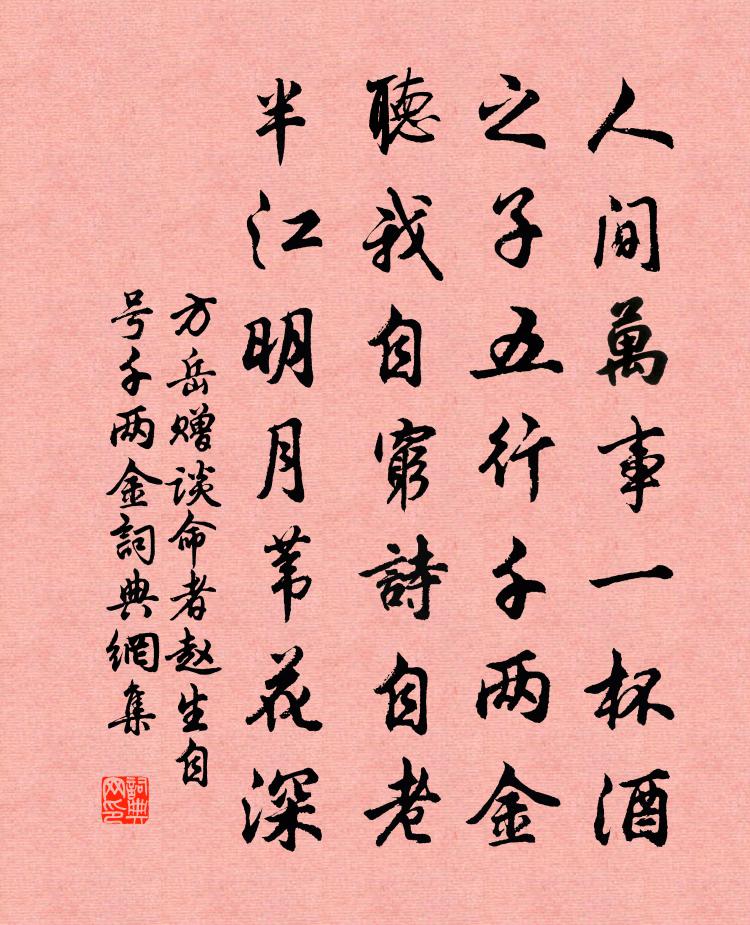 人間萬事一杯酒
之子五行千两金
聽我自窮詩自老
半江明月苇花深
方岳赠谈命者赵生自
号千两金詞典網集
詞典
网印